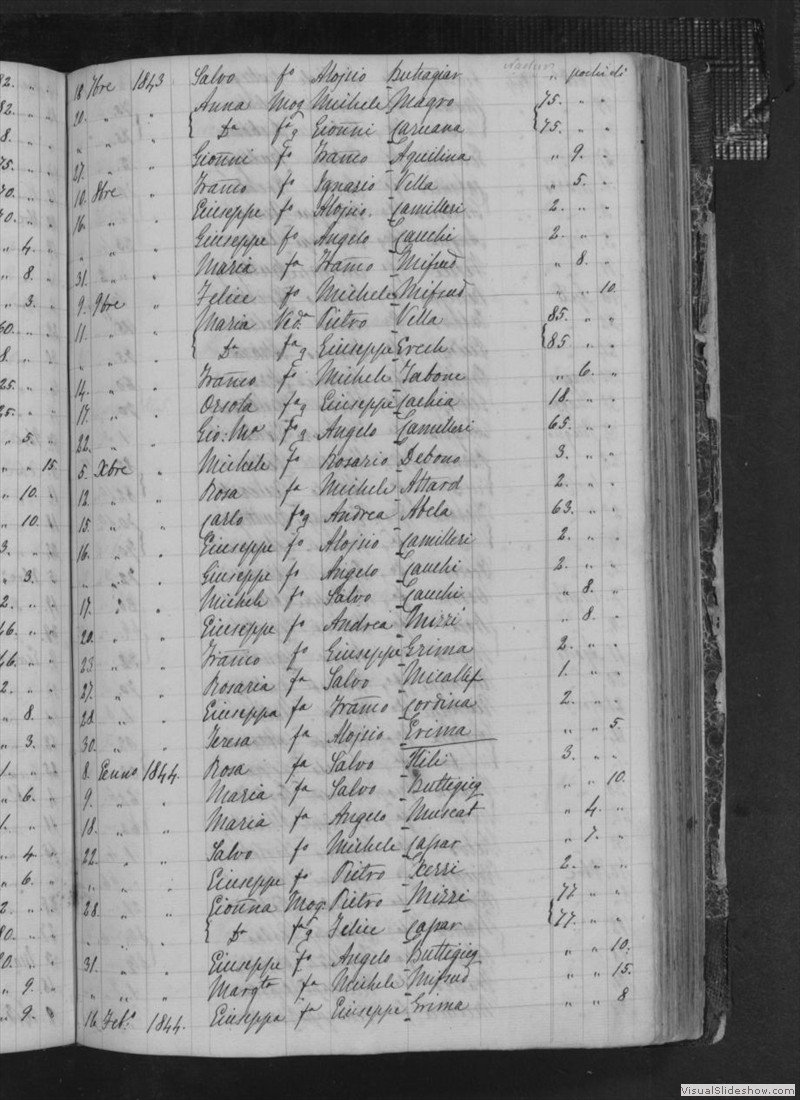 Nadur
18 7bre 1843 Salvo fo Alojsio Buttagiar " pochi di
20. " " Anna Mog Michele Magro 75. " "
" " " { Da fa q Gionni Caruana {75. " "
27. " " Gionni fo Franco Aquilina " 9. "
10. 8bre " Franco fo Ignazio Vella " 5. "
16. " " Giuseppe fo Alojsio Camilleri 2. " "
" " " Giuseppe fo Angelo Cauchi 2. " "
31. " " Maria fa Franco Mifsud " 8. "
9. 9bre " Felice fo Michele Mifsud " " 10.
11. " " Maria Veda Pietro Vella 85. " "
" " " { Da fa q Giuseppe Grech {85 " "
14. " " Franco fo Michele Tabone " 6. "
17. " " Orsola fa q Giuseppe Cachia 18. " "
22. " " Gio: Ma fo q Angelo Camilleri 65. " "
5. Xbre " Michele fo Rosario Debono 3. " "
12. " " Rosa fa Michele Attard 2. " "
15. " " Carlo fo q Andrea Abela 63. " "
16. " " Giuseppe fo Alojsio Camilleri 2. " "
" " " Giuseppe fo Angelo Cauchi 2. " "
17. " " Michele fo Salvo Cauchi " 8. "
20. " " Giuseppe fo Andrea Mizzi " 8. "
23. " " Franco fo Giuseppe Grima 2. " "
27. " " Rosaria fa Salvo Micallef 1. " "
28. " " Giuseppa fa Franco Cordina 2. " "
30. " " Teresa fa Alojsio Grima " " 5.
8. Genno 1844. Rosa fa Salvo Hili 3. " "
9. " " Maria fa Salvo Buttigieg " " 10.
18. " " Maria fa Angelo Muscat " 4. "
22. " " Salvo fo Michele Capar " 7. "
" " " Giuseppe fo Pietro Xerri 2. " "
28. " " Gionna Mog. Pietro Mizzi 77 " "
" " " { Da fa q Felice Capar {77. " "
31. " " Giuseppe fo Angelo Buttigieg " " 10.
" " " Margta fa Michele Mifsud " " 15.
16 Feb.o 1844. Giuseppa fa Giuseppe Grima " " 8
VisualSlideshow.com